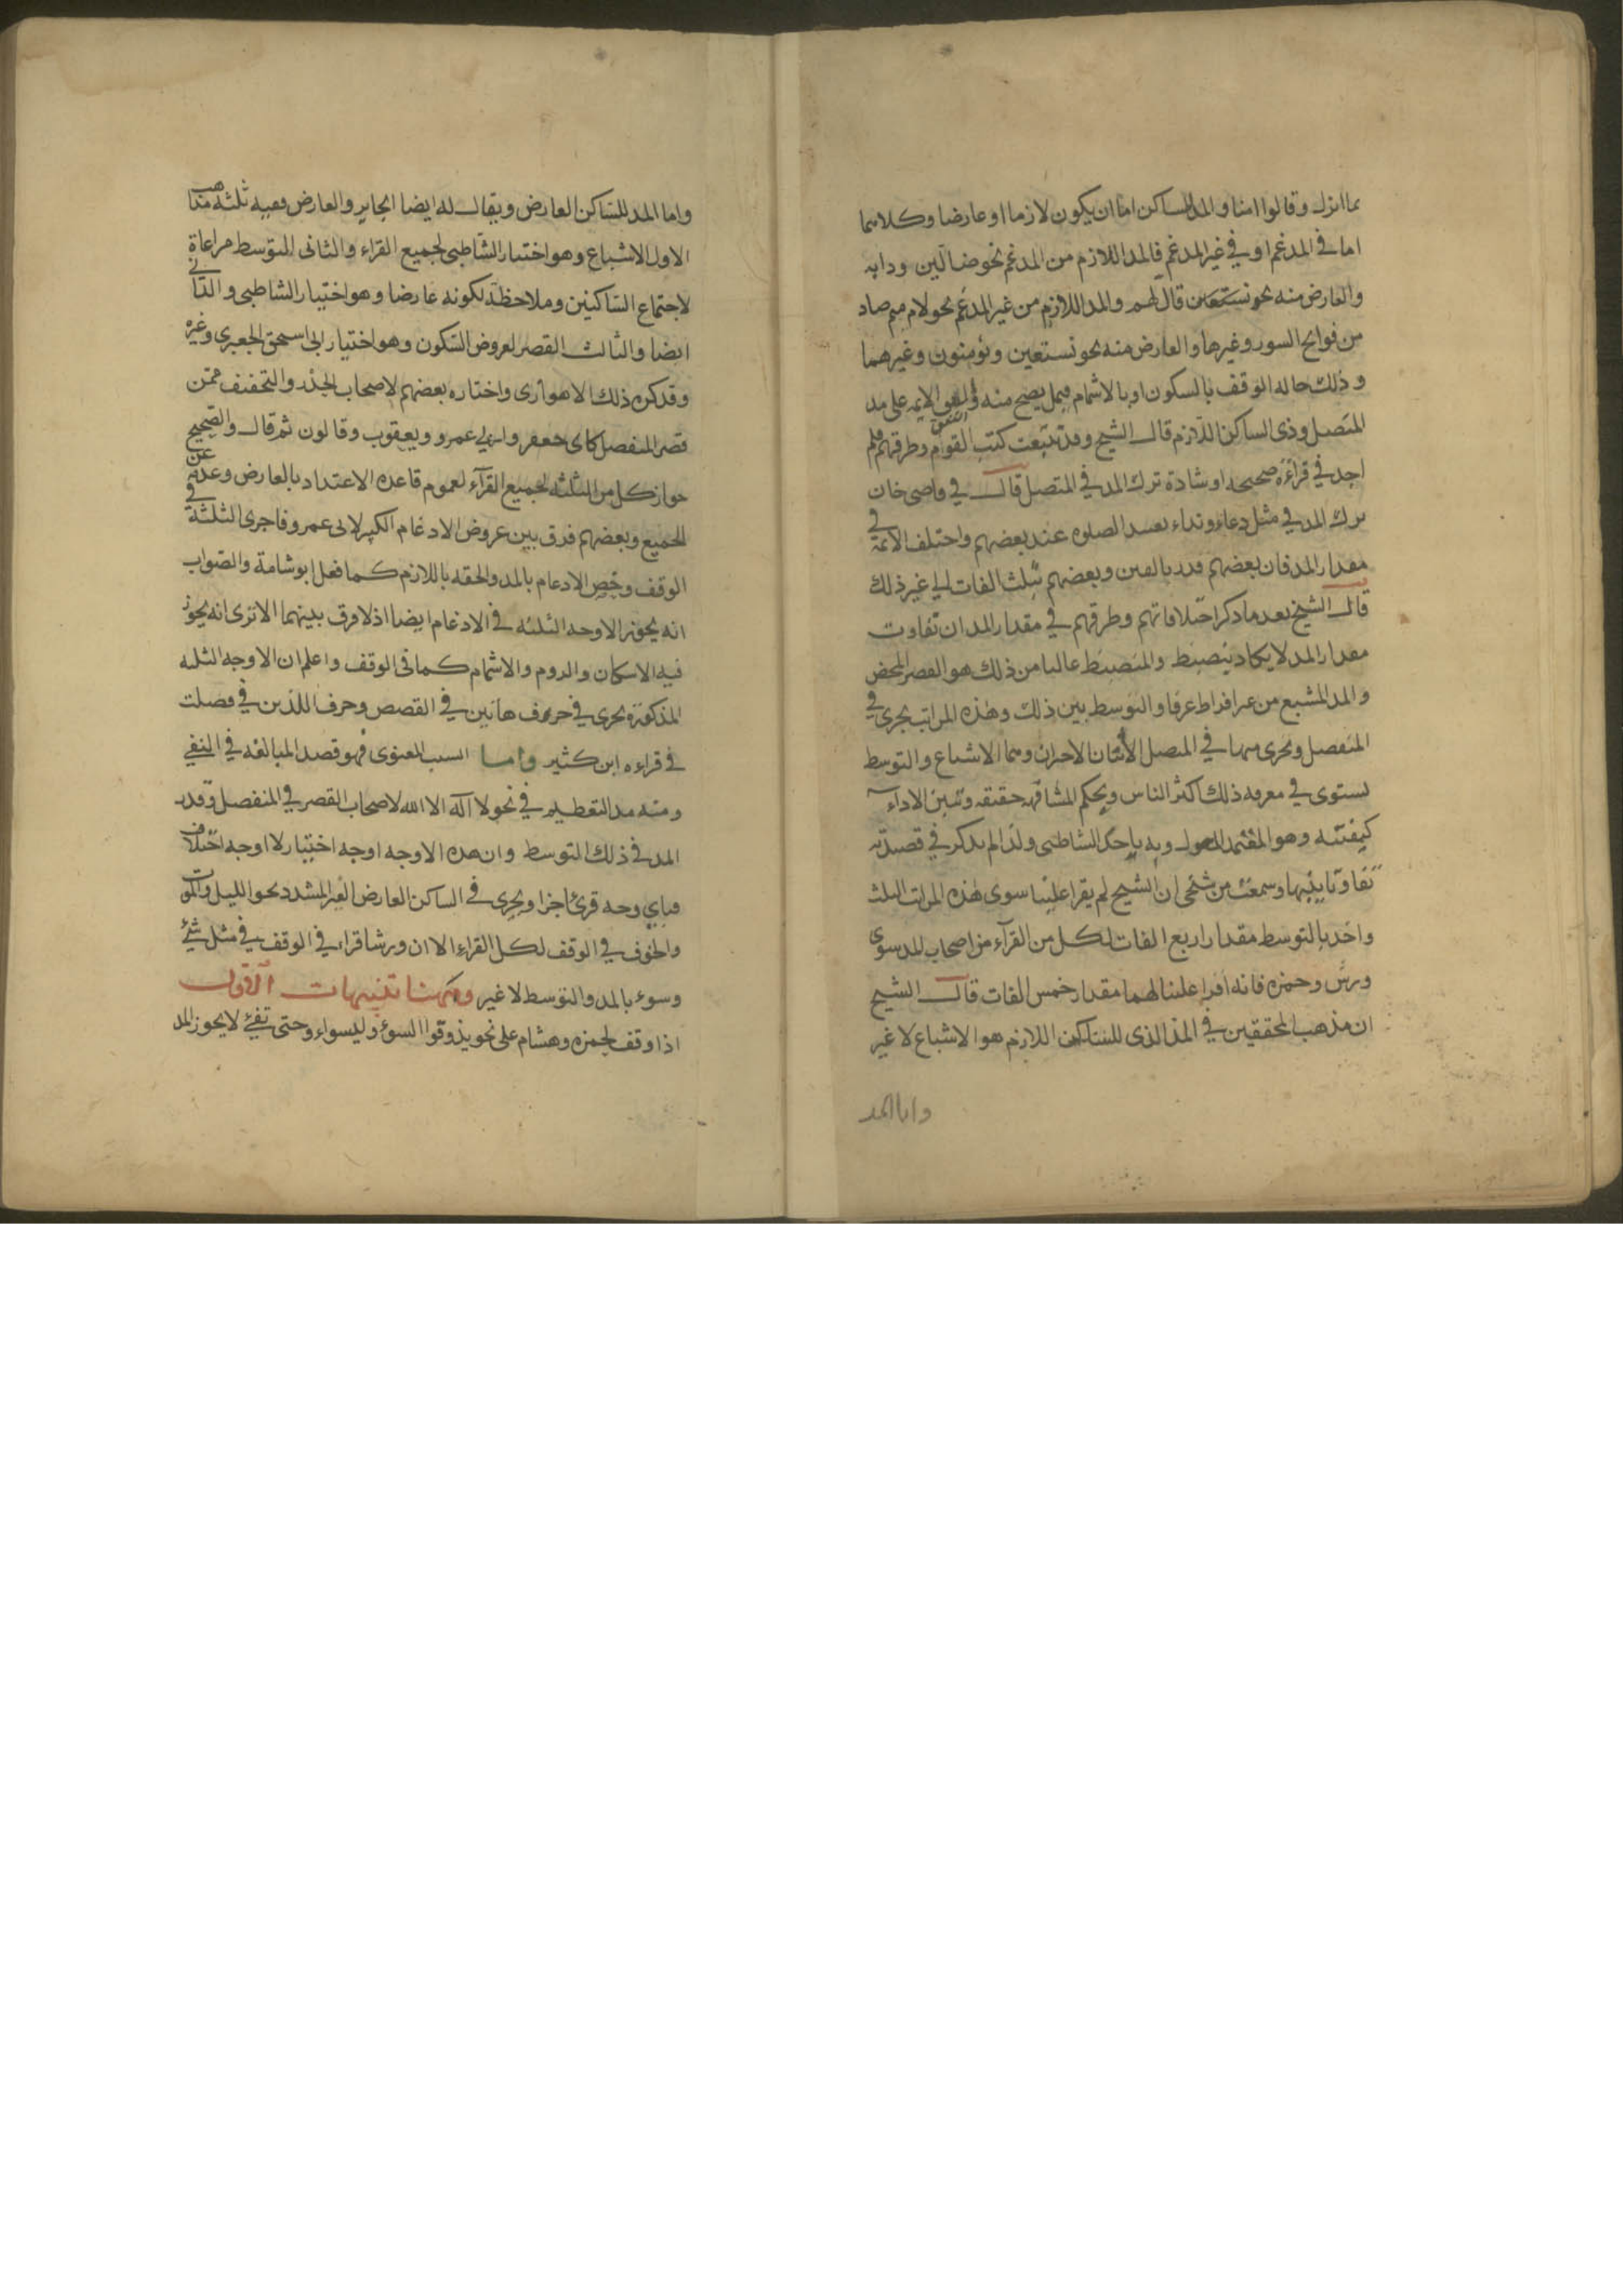 بما انزل وقالوا امنا والمد للساكن اما ان يكون لازما او عارضا وكلاهما
اما في المدغم او في غير المدغم فالمد اللازم من المدغم نحو ضالين ودابه
والعارض منه نحو نستعين قال لهم والمد اللازم من غير المدغم نحو لام ميم صاد
من فواتح السور وغيرها والعارض منه نحو نستعين ويؤمنون وغيرهما
وذلك حاله الوقف بالسكون او بالاشمام فيما يصح منه واتفق الايمه على مد
المتصل وذي الساكن اللازم قال الشيخ وقد تتبعت كتب القوم وطرقهم فلم
اجد في قراءة صحيحه او شاذة ترك المد في المتصل قال في قاضي خان
ترك المد في مثل دعاء ونداء يفسد الصلوه عند بعضهم واختلف الائمة في
مقدار المد فان بعضهم قدر بالفين وبعضهم بثلث الفات الى غير ذلك
قال الشيخ بعد ما ذكر اختلافاتهم وطرقهم في مقدار المد ان تفاوت
مقدار المد لا يكاد ينضبط والمنضبط غالبا من ذلك هو القصر المحض
والمد المشبع من غير افراط عرفا والتوسط بين ذلك وهذه المراتب يجري في
المنفصل ويجري منها في المتصل الاثنان الاخران وهما الاشباع والتوسط
يستوي في معرفه ذلك اكثر الناس ويحكم المشافهه حقيقه ويبين الاداء
كيفيته وهو المعتمد المعول وبه ياخذ الشاطبي ولذا لم يذكر في قصيدته
تفاوتا بينها وسمعت من شيخي ان الشيخ لم يقرا علينا سوى هذه المراتب الثلث
واخذ بالتوسط مقدار اربع الفات لكل من القرآء من اصحاب المد سوى
ورش وحمزه فانه اقرا علينا لهما مقدار خمس الفات قال الشيخ
ان مذهب المحققين في المد الذى للساكن اللازم هو الاشباع لا غير
واما المد
واما المد للساكن العارض ويقال له ايضا الجايز والعارض ففيه ثلثه مذاهب
الاول الاشباع وهو اختيار الشاطبي لجميع القراء والثانى التوسط مراعاة
لاجتماع الساكنين وملاحظة لكونه عارضا وهو اختيار الشاطبي والداني
ايضا والثالث القصر لعروض السكون وهو اختيار ابى اسحق الجعبري وغيره
وقد كره ذلك الاهوازى واختاره بعضهم لاصحاب الحدر والتخفيف ممن
قصر المنفصل كابى جعفر وابى عمرو ويعقوب وقالون ثم قال والصحيح
جواز كل من الثلثه لجميع القرآء لعموم قاعده الاعتداد بالعارض وعدمه عن
الجميع وبعضهم فرق بين عروض الادغام الكبير لابى عمرو فاجرى الثلثة في
الوقف وخص الادغام بالمد والحقه باللازم كما فعل ابو شامة والصواب
انه يجوز الاوجه الثلثه في الادغام ايضا اذ لا فرق بينهما الا ترى انه يجوز
فيه الاسكان والروم والاشمام كما فى الوقف واعلم ان الاوجه الثلثه
المذكوره يجرى في حرف هاتين في القصص وحرف اللذين في فصلت
في قراءه ابن كثير واما السبب المعنوى فهو قصد المبالغه في النفي
ومنه مد التعظيم في نحو لا آله الا الله لاصحاب القصر في المنفصل وقدر
المد في ذلك التوسط وان هذه الاوجه اوجه اختيار لا اوجه اختلاف
فباي وجه قرئ اجزا ويجرى في الساكن العارض الغير المشدد نحو الليل والموت
والخوف في الوقف لكل القراء الا ان ورشا قراء في الوقف في مثل شئ
وسوء بالمد والتوسط لا غير وههنا تنبيهات الاول
اذا وقف لحمزه وهشام على نحو يذوقوا السوء وليسواء وحتى تفئ لا يجوز المد